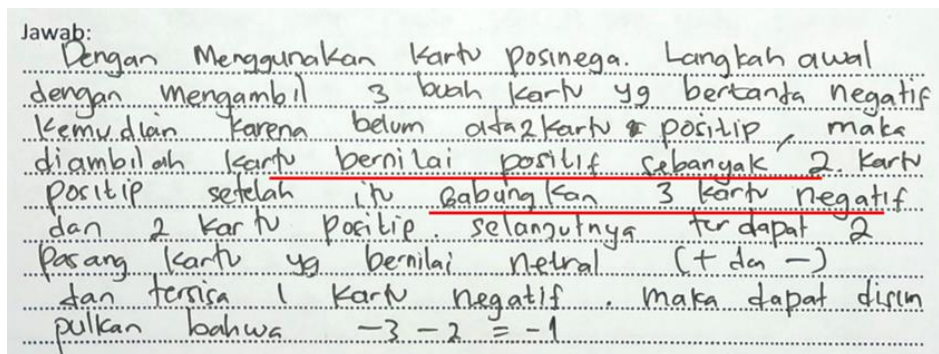 Jawab:
Dengan Menggunakan Kartu posinega. Langkah awal
dengan mengambil 3 buah kartu yg bertanda negatif
Kemudian karena belum ada 2 kartu positip, maka
diambilah kartu bernilai positif sebanyak 2. kartu
positip setelah itu Gabungkan 3 kartu negatif
dan 2 kartu positip. selanjutnya terdapat 2
Pasang kartu yg bernilai netral (+ dan -)
dan tersisa 1 kartu negatif. maka dapat disim
pulkan bahwa -3 - 2 = -1